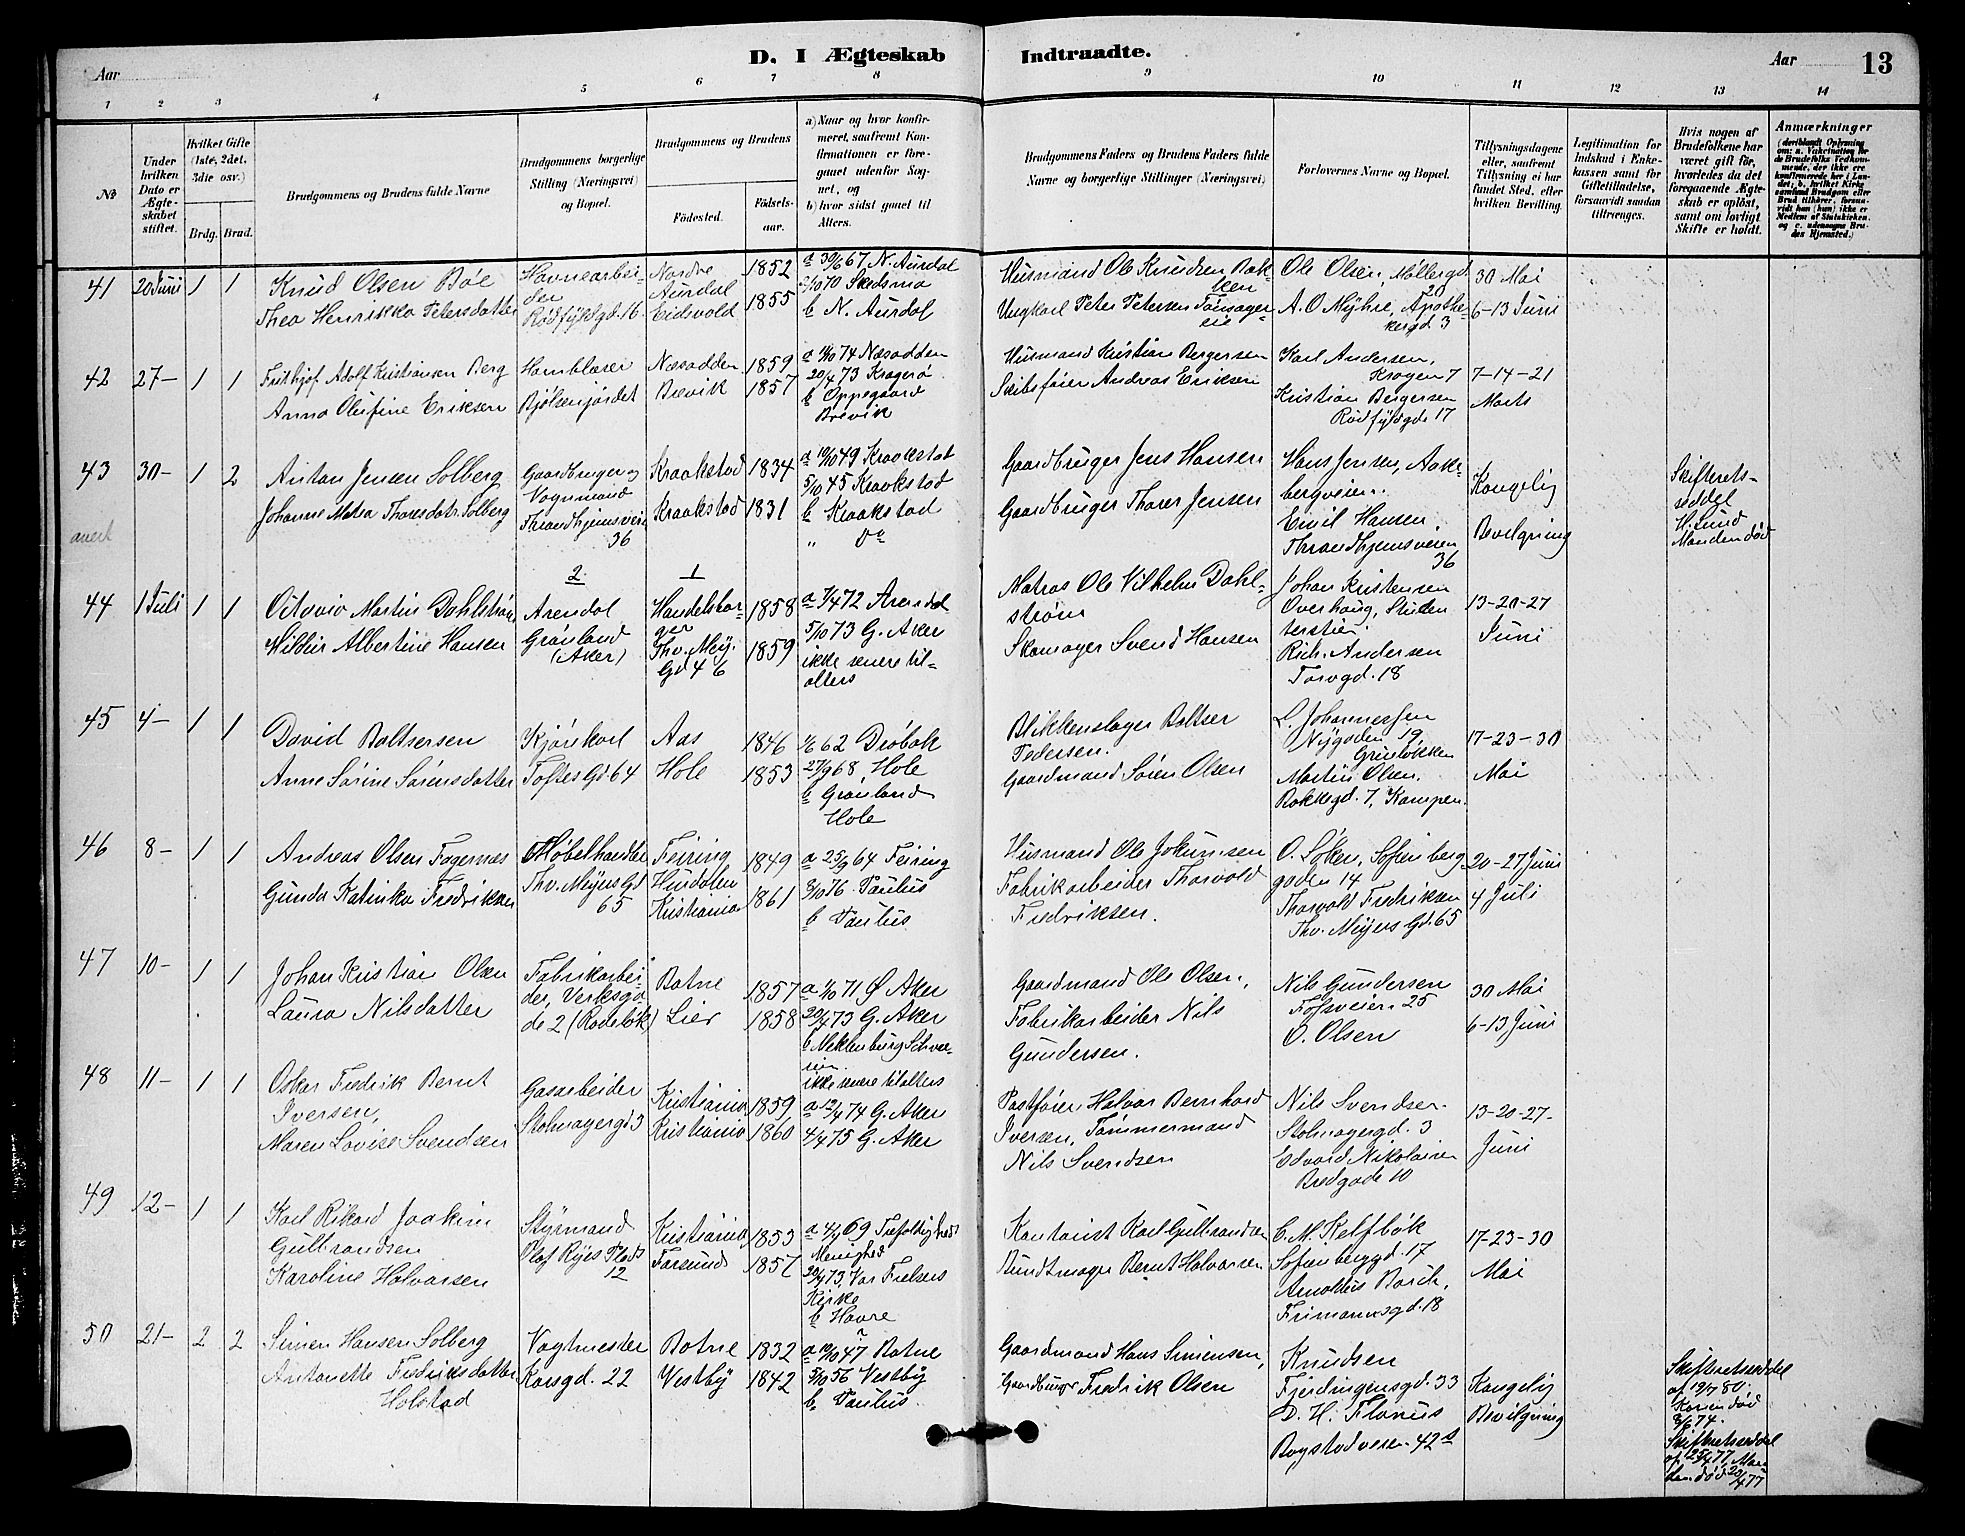 D. I Ægteskab Indtraadte.
Aar
Aar
13
1 2 3 4 5 6 7 8 9 10 11 12 13 14
№
Under hvilken Dato er Ægteskabet stiftet.
Hvilket Gifte (1ste, 2det, 3die osv.)
Brdg. Brud.
Brudgommens og Brudens fulde Navne
Brudgommens borgerlige Stilling (Næringsvei) og Bopæl.
Brudgommens og Brudens
Fødested.
Fødselsaar.
a) Naar og hvor konfirmeret, saafremt Konfirmationen er foregaaet udenfor Sognet, og
b) hvor sidst gaaet til Alters.
Brudgommens Faders og Brudens Faders fulde Navne og borgerlige Stillinger (Næringsvei)
Forlovernes Navne og Bopæl.
Tillysningsdagene eller, saafremt Tillysning ei har fundet Sted, efter hvilken Bevilling.
Legitimation for Indskud i Enkekassen samt for Giftetilladelse, forsaavidt saadan tiltrænges.
Hvis nogen af Brudefolkene har været gift før, hvorledes da det foregaaende Ægteskab er opløst, samt om lovligt Skifte er holdt.
Anmærkninger
41 20 Juni 1 1
Knud Olsen Bøe
Thea Henrikka Petersdatter
Havnearbeider
Rødfyldgd. 16
Nordre Aurdal
Eidsvold
1852
1855
a 30/6 67 N. Aurdal
/10 70 Skedsmo
b N. Aurdal
Husmand Ole Knudsen Bakken
Ungkarl Peter Petersen
Ole Olsen, Møllergd. 20
A. O. Myhre, Apothekergd 3
30 Mai
6-13 Juni
42 27- 1 1
Frithjof Adolf Kristiansen Berg
Anna Olufine Eriksen
Hornblæser
Bjølsenjordet
Næsodden
Brevik
1859
1857
a /10 74 Næsodden
20/4 73 Kragerø
b Oppegaard
Brevik
Husmand Kristian Bergersen
Skibsfører Andreas Eriksen
Karl Andersen,
Krogen 7
Kristian Bergersen
Rødfyldgde 17
7-14-21
Marts
43 30- 1 2
Anton Jensen Solberg
Johanne Thoresdatr. Solberg
Gaardbruger og
Vognmand
Throndhjemsveien
36
Kraakstad
Kraakstad
1834
1831
a 10/10 49 Kraakstad
5/10 45 Kraakstad
b Kraakstad
" do
Gaardbruger Jens Hansen
Gaardbruger Thorer Jensen
Hans Jensen, Aakebergveien.
Emil Hansen,
Throndhjemsveien
36
Kongelig
Bevilgning
Skifteretsseddel
Manden død
44 1 Juli 1 1
Octavio Martin Dahlstrøm
Hilda Albertine Hansen
2
Arendal
Grønland
(Aker)
1
Thv. Mey. Gd 46
1858
1859
a 7/4 72 Arendal
5/10 73 G. Aker
ikke senere til-
alters
Matros Ole Vilhelm Dahlstrøm
Skomager Svend Hansen
Johan Kristensen
Overhaug, Studenterstien.
Rich. Andersen
Torvgd. 18
13-20-27
Juni
45 4- 1 1
David Baltsersen
Anne Sørine Sørensdatter
Kjørekarl
Toftes Gd 64
Aas
Hole
1846
1853
62 Drøbak
27/9 68, Hole
b Grønland
Hole
Blikkenslager Baltser
Pedersen.
Gaardmand Søren Olsen
L. Johannessen
Nygaden 19
Grünløkken
Martin Olsen,
Bakkegd. 7, Kampen.
17-23-30
Mai
46 8- 1 1
Andreas Olsen Fagernæs
Gunda Katinka Fredriksen
Møbelhandler
Thv. Meyers Gd
65
Feiring
Hurdalen
Kristiania
1849
1861
a 25/9 64 Feiring
8/10 76 Paulus
b Paulus.
Husmand Ole Jokumsen
Fabrikarbeider Thorvald
Fredriksen.
O. Løken, Sofienberg
gaden 14
Thorvald Fredriksen
Thv. Meyers Gd. 65
20-27 Juni
4 Juli
47 10- 1 1
Johan Kristian Olsen
Laura Nilsdatter
Fabrikarbeider, Verksgade 2 (Rodeløk)
Botne
Lier
1857
1858
a /10 71 Ø Aker
20/4 73 G. Aker
b Meklenburg Schwerin
ikke senere tilalters
Gaardmand Ole Olsen,
Fabrikarbeider Nils
Gundersen.
Nils Gundersen
Fossveien 25
O. Olsen
30 Mai
6-13 Juni
48 11- 1 1
Oskar Fredrik Bernt
Iversen,
Maren Lovise Svendsen
Gasarbeider
Stolmagergd 3
Kristiania
Kristiania
1859
1860
a 12/4 74 G. Aker
4/4 75 G. Aker
Postfører Halvor Bernhard
Iversen, Tømmermand
Nils Svendsen
Nils Svendsen
Stolmagergd. 3
Edvard Nikolaisen
Bredgade 10
13-20-27-
Juni
49 12- 1 1
Karl Rikard Joakim
Gulbrandsen
Karoline Halvorsen
Styrmand
Olaf Ryes Plads
12
Kristiania
Farsund
1853
1857
a 4/4 69 Trefoldigheds
Menighed
20/4 73, Vor Frelsers
Kirke
b Havre
Kontorist Karl Gulbrandsen
Bundtmager Bernt Halvorsen
C. M.
Sofienberggd. 17
Frimannsgd. 18
17-23-30
Mai
50 21- 2 2
Simen Hansen Solberg
Antonette Fredriksdatter
Holstad
Vagtmester
Korsgd. 22
Botne
Vestby
1832
1842
a 10/10 47 Botne
5/10 56 Vestby
b Paulus.
Gaardmand Hans Simensen,
Gaardbruger Fredrik Olsen
Knudsen
Fjerdingensgd. 33
D. H.
Bogstadveien 42
Kongelig
Bevilgning
Skifteretsseddel
af 19/7 80.
Konen død
8/6 74.
Skifteretsseddel
af 25/4 77, Manden død 20/4 77